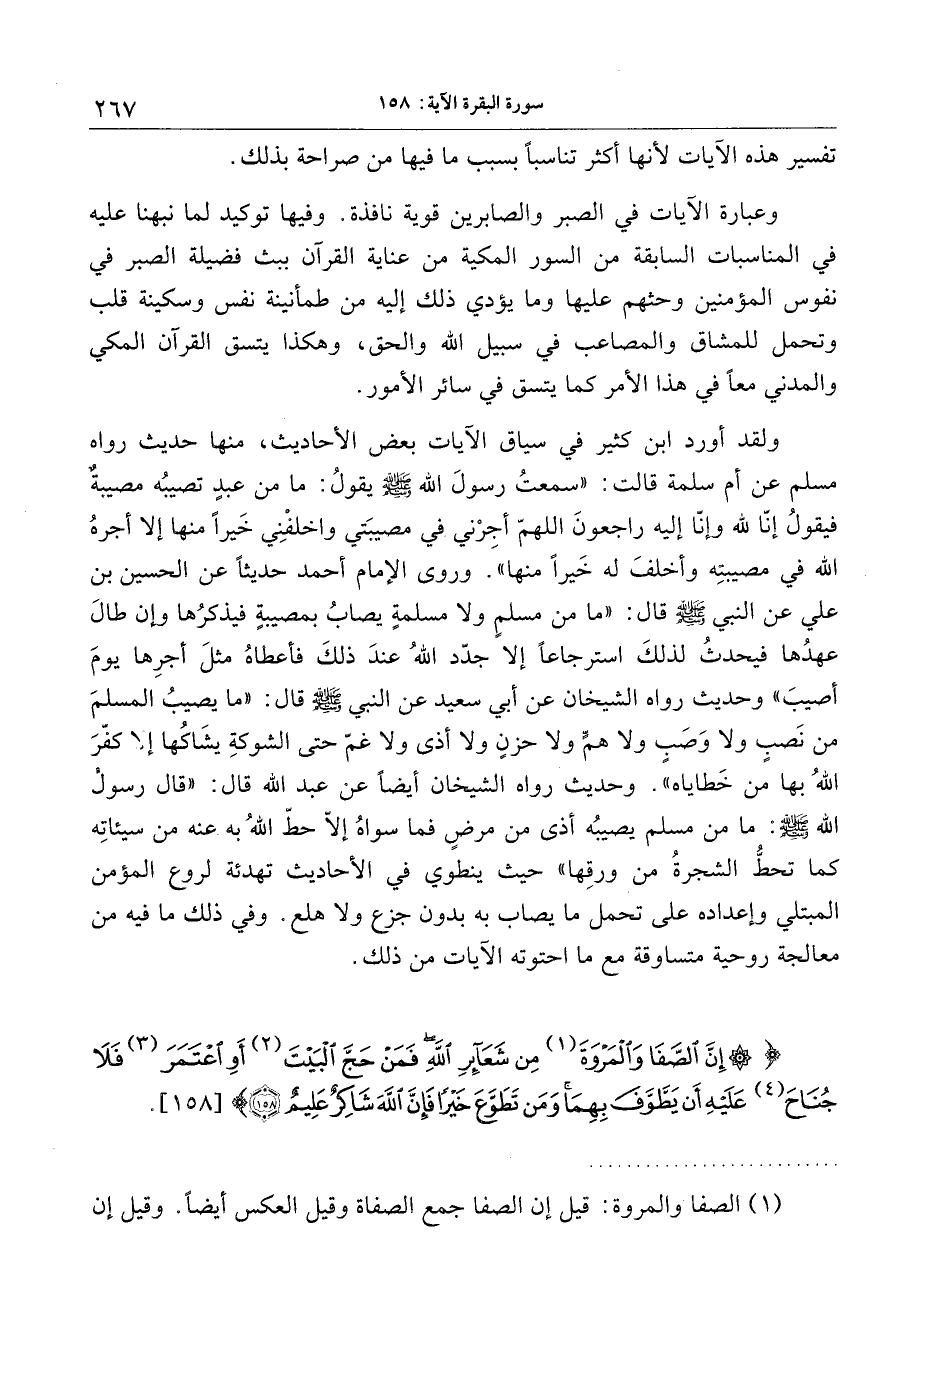 سورة البقرة الآية: ١٥٨ ٢٦٧
تفسير هذه الآيات لأنها أكثر تناسباً بسبب ما فيها من صراحة بذلك.
وعبارة الآيات في الصبر والصابرين قوية نافذة. وفيها توكيد لما نبهنا عليه
في المناسبات السابقة من السور المكية من عناية القرآن ببث فضيلة الصبر في
نفوس المؤمنين وحثهم عليها وما يؤدي ذلك إليه من طمأنينة نفس وسكينة قلب
وتحمل للمشاق والمصاعب في سبيل الله والحق، وهكذا يتسق القرآن المكي
والمدني معاً في هذا الأمر كما يتسق في سائر الأمور.
ولقد أورد ابن كثير في سياق الآيات بعض الأحاديث، منها حديث رواه
مسلم عن أم سلمة قالت: «سمعتُ رسولَ الله ﷺ يقولُ: ما من عبدٍ تصيبُه مصيبةٌ
فيقولُ إنّا لله وإنّا إليه راجعونَ اللهمّ أجِرْني في مصيبَتي واخلفْنِي خَيراً منها إلا أجرهُ
الله في مصيبتِه وأخلفَ له خَيراً منها». وروى الإمام أحمد حديثاً عن الحسين بن
علي عن النبي ﷺ قال: «ما من مسلمٍ ولا مسلمةٍ يصابُ بمصيبةٍ فيذكرُها وإن طالَ
عهدُها فيحدثُ لذلكَ استرجاعاً إلا جدّد اللهُ عندَ ذلكَ فأعطاهُ مثلَ أجرِها يومَ
أصيبَ» وحديث رواه الشيخان عن أبي سعيد عن النبي ﷺ قال: «ما يصيبُ المسلمَ
من نَصبٍ ولا وَصَبٍ ولا همٍّ ولا حزنٍ ولا أذى ولا غمّ حتى الشوكةِ يشَاكُها إلا كفّرَ
اللهُ بها من خَطاياه». وحديث رواه الشيخان أيضاً عن عبد الله قال: «قال رسولُ
الله ﷺ: ما من مسلم يصيبُه أذى من مرضٍ فما سواهُ إلاّ حطّ اللهُ به عنه من سيئاتِه
كما تحطُّ الشجرةُ من ورقِها» حيث ينطوي في الأحاديث تهدئة لروع المؤمن
المبتلي وإعداده على تحمل ما يصاب به بدون جزع ولا هلع. وفي ذلك ما فيه من
معالجة روحية متساوقة مع ما احتوته الآيات من ذلك.
﴿ ۞ إِنَّ ٱلصَّفَا وَٱلْمَرْوَةَ(١) مِن شَعَآئِرِ ٱللَّهِۖ فَمَنْ حَجَّ ٱلْبَيْتَ(٢) أَوِ ٱعْتَمَرَ(٣) فَلَا
جُنَاحَ(٤) عَلَيْهِ أَن يَطَّوَّفَ بِهِمَاۚ وَمَن تَطَوَّعَ خَيْرًا فَإِنَّ ٱللَّهَ شَاكِرٌ عَلِيمٌ ١٥٨﴾ [١٥٨].
(١) الصفا والمروة: قيل إن الصفا جمع الصفاة وقيل العكس أيضاً. وقيل إن